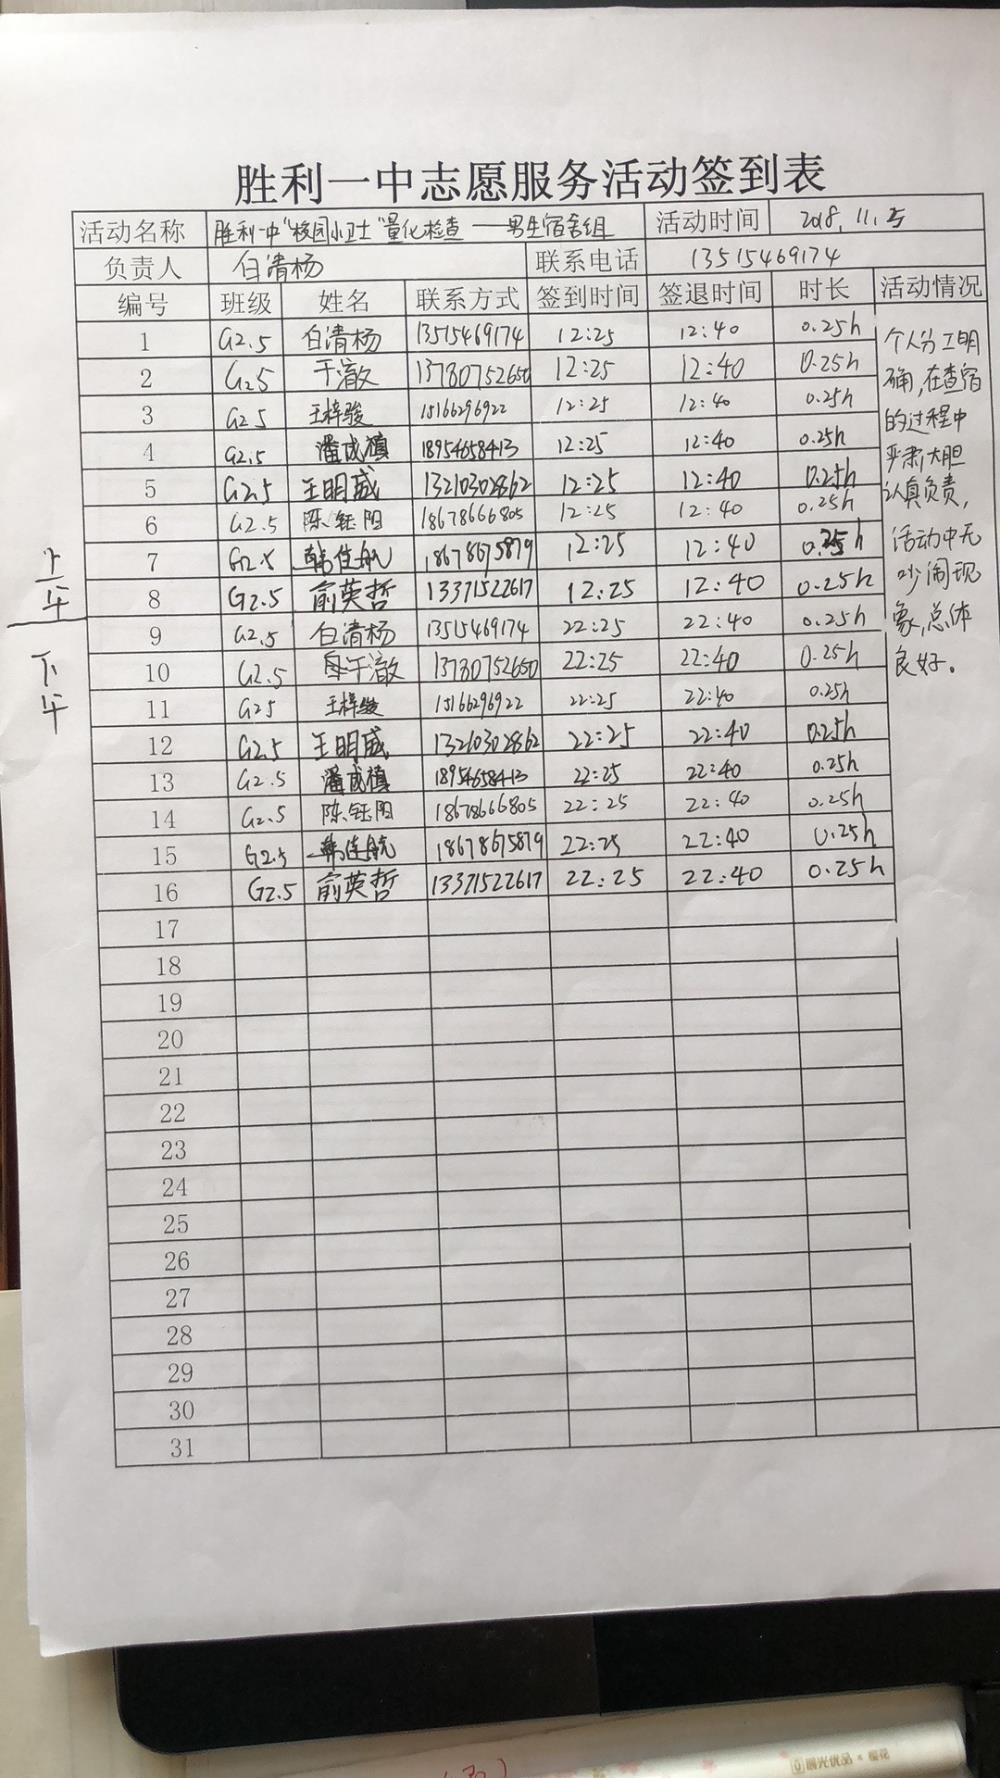 胜利一中志愿服务活动签到表
活动名称 胜利一中"校园小卫士"量化检查——男生宿舍组 活动时间 2018.11.5
负责人 白清杨 联系电话 13515469174
编号 班级 姓名 联系方式 签到时间 签退时间 时长 活动情况
1 G2.5 白清杨 13515469174 12:25 12:40 0.25h
2 G2.5 于澈 13780752650 12:25 12:40 0.25h
3 G2.5 王梓骏 15166296922 12:25 12:40 0.25h
4 G2.5 潘成禛 18954658413 12:25 12:40 0.25h
5 G2.5 王明威 13210302862 12:25 12:40 0.25h
6 G2.5 陈钰阳 18678666805 12:25 12:40 0.25h
7 G2.5 韩佳航 18678675879 12:25 12:40 0.25h
8 G2.5 俞英哲 13371522617 12:25 12:40 0.25h
9 G2.5 白清杨 13515469174 22:25 22:40 0.25h
10 G2.5 于澈 13780752650 22:25 22:40 0.25h
11 G2.5 王梓骏 15166296922 22:25 22:40 0.25h
12 G2.5 王明威 13210302862 22:25 22:40 0.25h
13 G2.5 潘成禛 18954658413 22:25 22:40 0.25h
14 G2.5 陈钰阳 18678666805 22:25 22:40 0.25h
15 G2.5 韩佳航 18678675879 22:25 22:40 0.25h
16 G2.5 俞英哲 13371522617 22:25 22:40 0.25h
17
18
19
20
21
22
23
24
25
26
27
28
29
30
31
个人分工明
确,在查宿
的过程中
严肃大胆
认真负责,
活动中无
吵闹现
象,总体
良好。
上午
下午
晨光优品×樱花